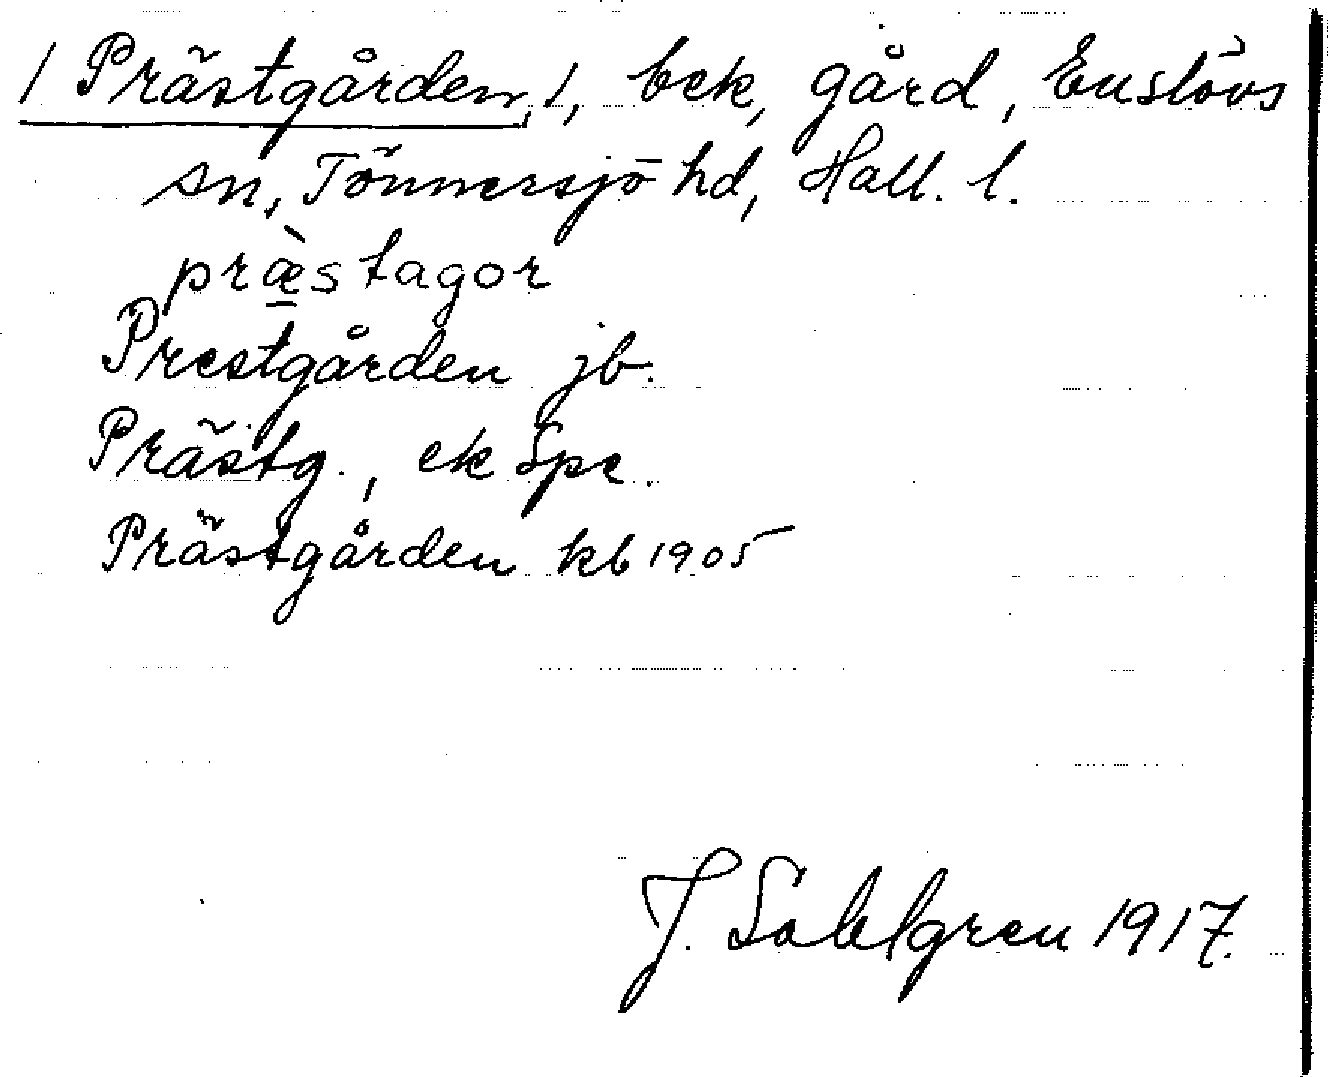 / Prästgården, /, bek, gård, Enslövs
sn, Tönnersjö hd, Hall. l.
præ̀stagor
Prestgården jb.
Prästg., ek Spe.
Prästgården kb 1905
J. Sahlgren 1917.